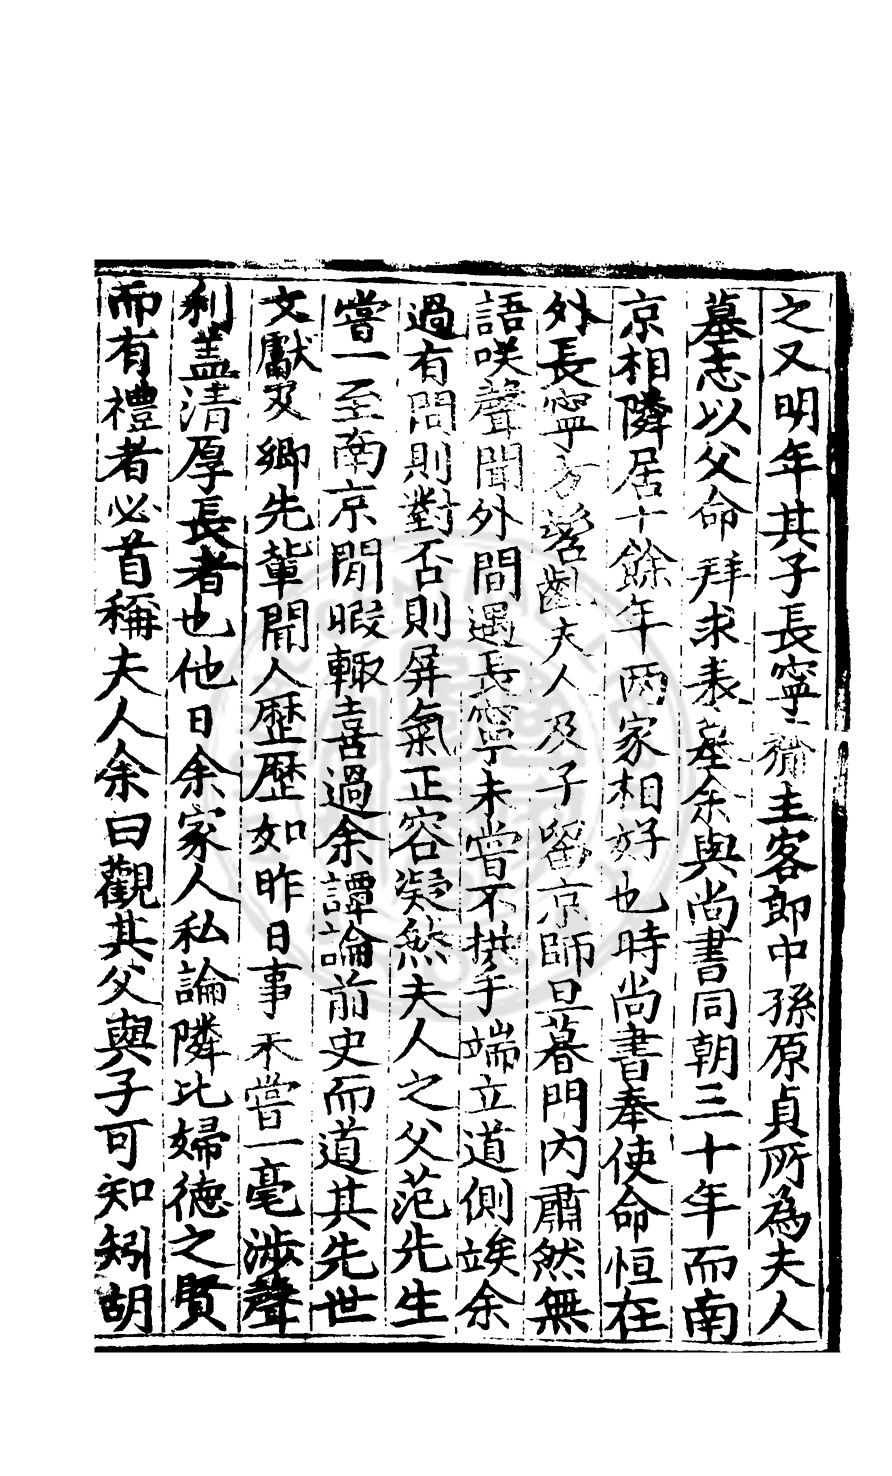 之又明年其子長寧齎主客郎中孫原貞所為夫人
墓志以父命拜求表墓余與尚書同朝三十年而南
京相隣居十餘年兩家相好也時尚書奉使命恒在
外長寧方髫齓夫人及子留京師旦暮門內肅然無
語咲聲聞外間遇長寧未嘗不拱手端立道側竢余
過有問則對否則屏氣正容凝然夫人之父范先生
嘗一至南京閒暇輙喜過余譚論前史而道其先世
文獻及鄉先輩聞人歷歷如昨日事未嘗一毫涉聲
利盖清厚長者也他日余家人私論隣比婦徳之賢
而有禮者必首稱夫人余曰觀其父與子可知矧胡